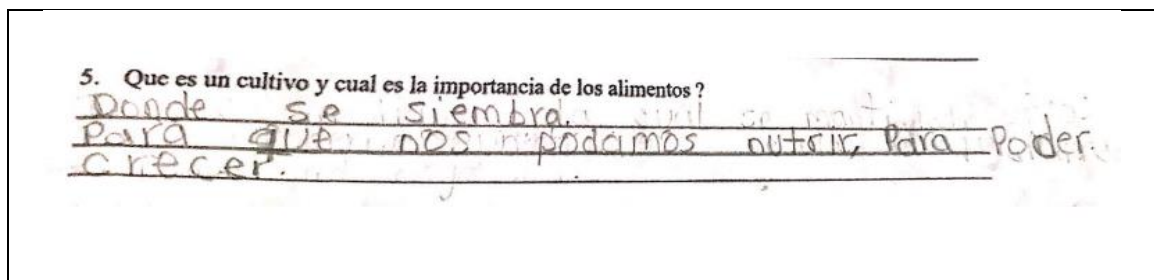 5. Que es un cultivo y cual es la importancia de los alimentos ?
Donde se siembra.
Para que nos podamos nutrir, Para Poder.
crecer.